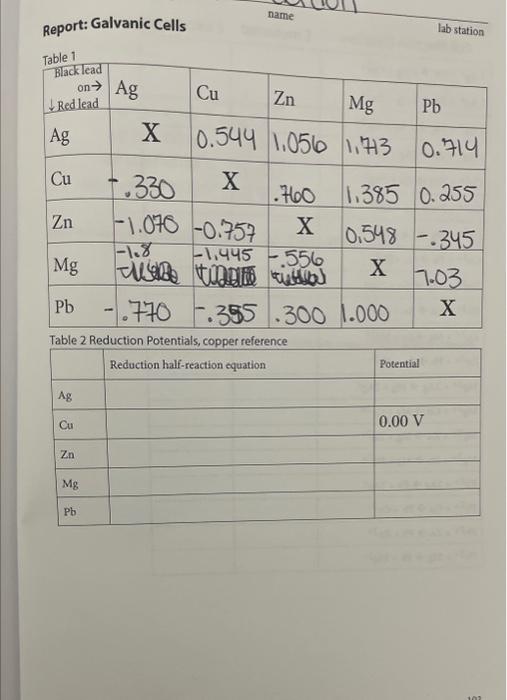 name
lab station
Report: Galvanic Cells
Table 1
Black lead on→ ↓ Red lead Ag Cu Zn Mg Pb
Ag X 0.544 1.056 1.713 0.714
Cu -.330 X .760 1.385 0.255
Zn -1.070 -0.757 X 0.548 -.345
Mg -1.8 -1.445 -.556 X 1.03
Pb -.770 -.355 .300 1.000 X
Table 2 Reduction Potentials, copper reference
Reduction half-reaction equation Potential
Ag
Cu 0.00 V
Zn
Mg
Pb